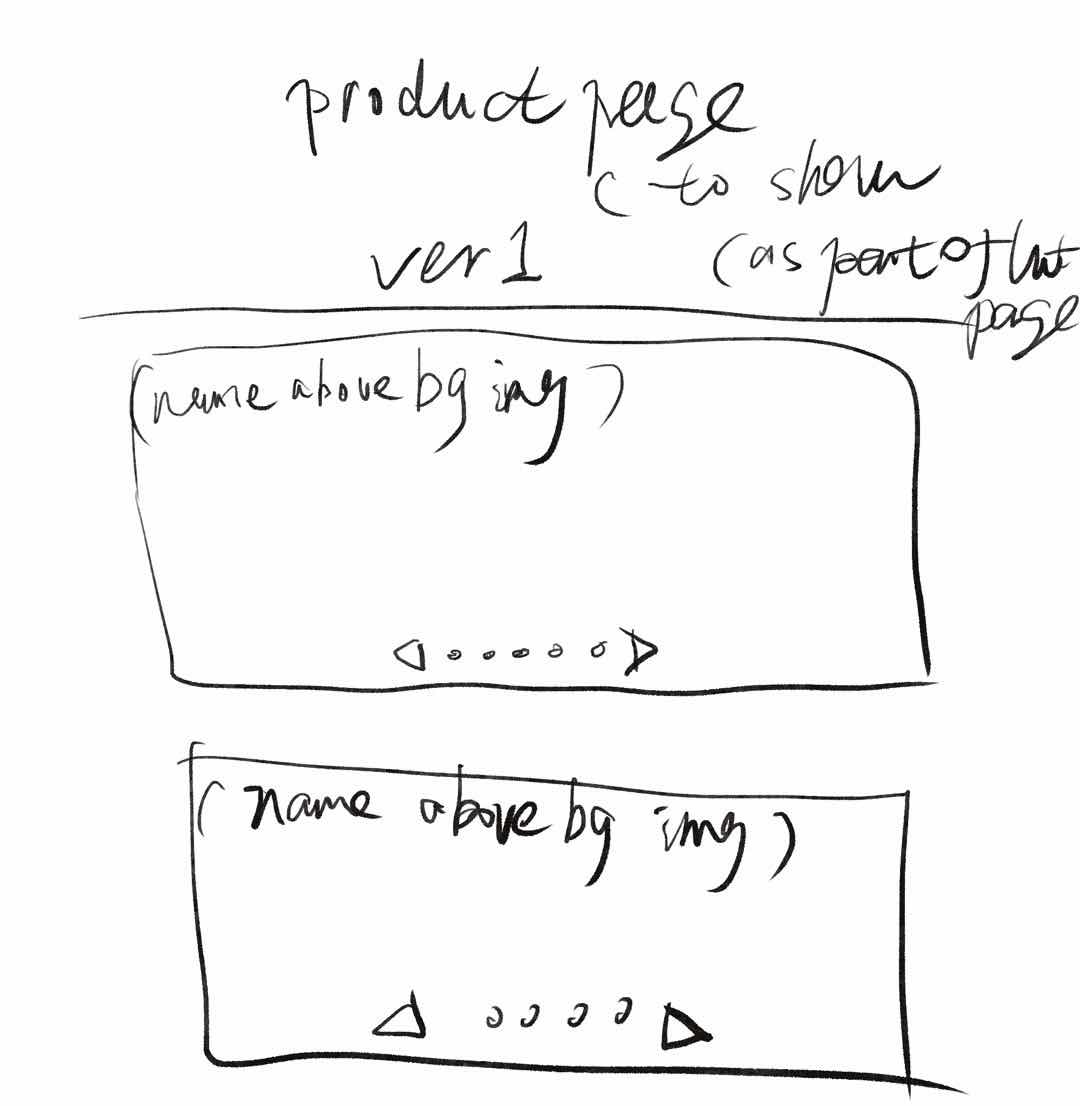 product page
( to show
ver 1
(as part of that
page
(name above bg img)
(name above bg img)